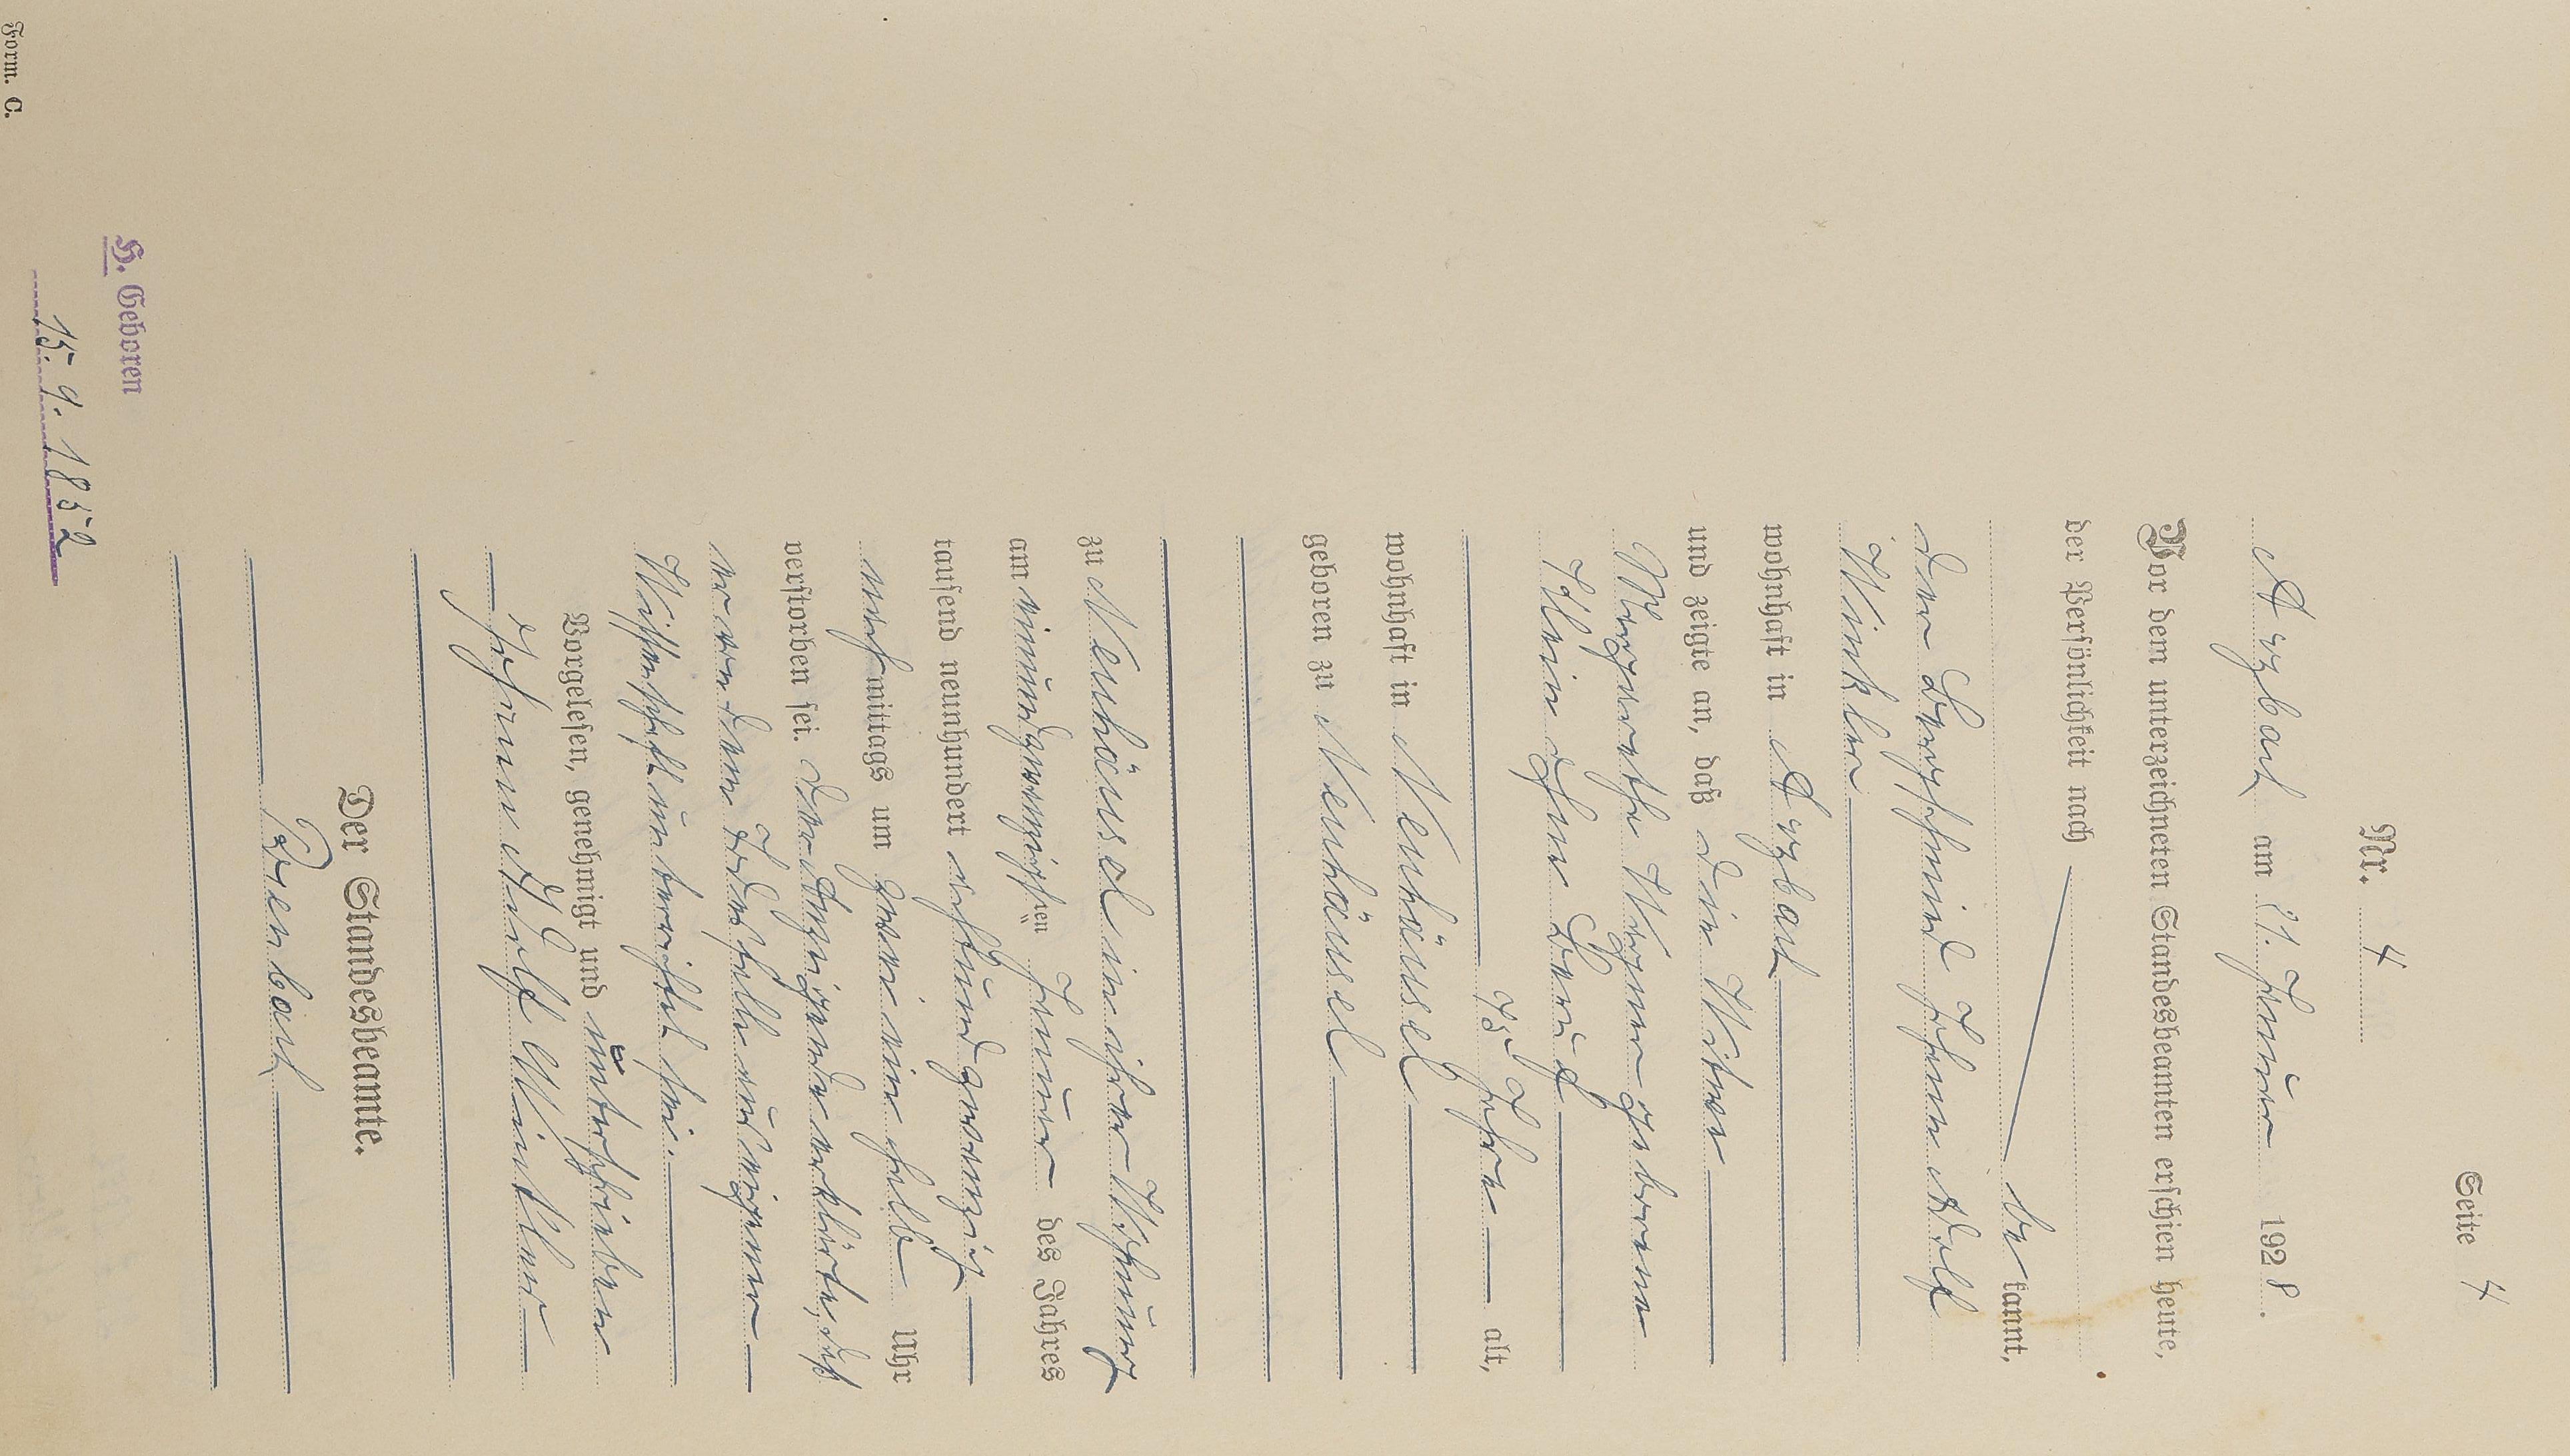 Seite 4
Nr. 4
Arzbach am 21. Januar 1928.
Vor dem unterzeichneten Standesbeamten erschien heute,
der Persönlichkeit nach
be kannt,
der Bergschmied Johann Adolf
Winkler
wohnhaft in Arzbach
und zeigte an, daß die Witwe
Margaretha Wagner geborene
Klein ohne Beruf
75 Jahre alt,
wohnhaft in Neuhäusel
geboren zu Neuhäusel
zu Neuhäusel in ihrer Wohnung
am einundzwanzigsten Januar des Jahres
tausend neunhundert achtundzwanzig
nachmittags um zwei ein halb Uhr
verstorben sei. Der Anzeigende erklärte, daß
er von dem Todesfalle aus eigener
Wissenschaft unterrichtet sei.
Vorgelesen, genehmigt und unterschrieben
Johann Adolf Winkler
Der Standesbeamte.
H. Geboren
15. 9. 1852
Form. C.